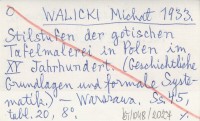 WALICKI Michał 1933.
Stilstufen der gotischen
Tafelmalerei in Polen im
XV Jahrhundert. (Geschichtliche
Grundlagen und formale Syste-
matik) — Warszawa. Ss. 45,
tabl. 20, 8°.